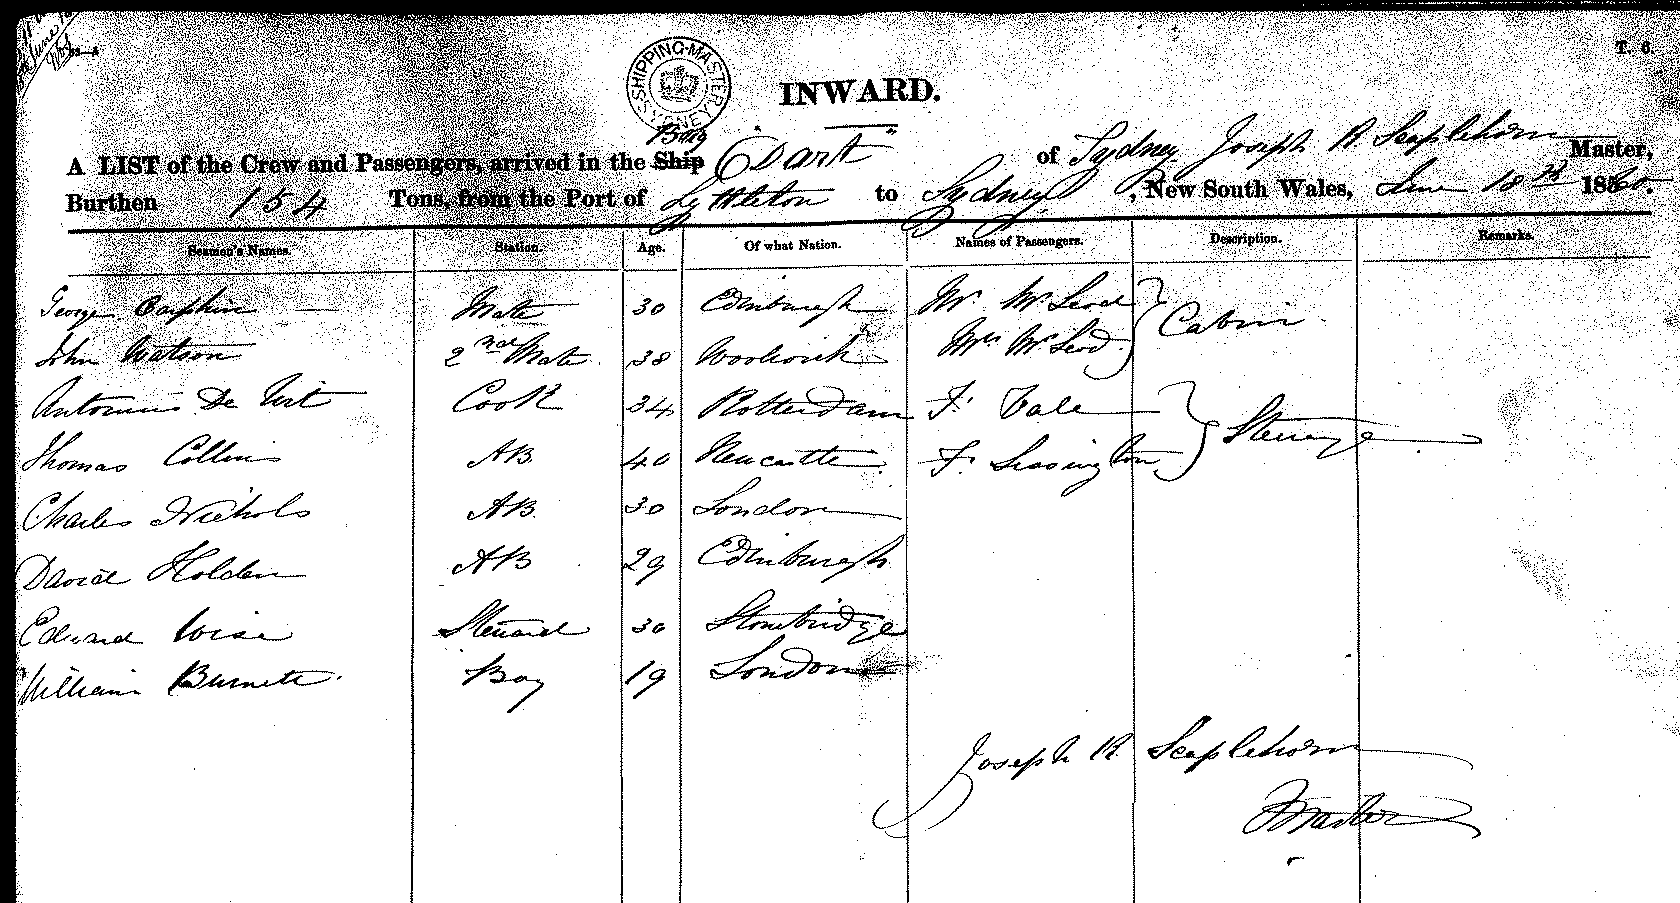 T. 6.
SHIPPING MASTER SYDNEY
INWARD.
A LIST of the Crew and Passengers, arrived in the Ship Barq "Dart" of Sydney Joseph R Scaplehorn Master,
Burthen 154 Tons, from the Port of Lyttleton to Sydney, New South Wales, June 18th 1860.
Seamen's Names. Station. Age. Of what Nation. Names of Passengers. Description. Remarks.
George Mate 30 Edinburgh Mr McLeod Cabin
John Watson 2nd Mate 38 Woolwich Mrs McLeod
Antonius De Wit Cook 34 Rotterdam F. Steerage
Thomas Collins AB 40 Newcastle F.
Charles Nichols AB 30 London
David Holden AB 29 Edinburgh
Edward Wise Steward 30 Stonebridge
William Burnett Boy 19 London
Joseph R. Scaplehorn
Master